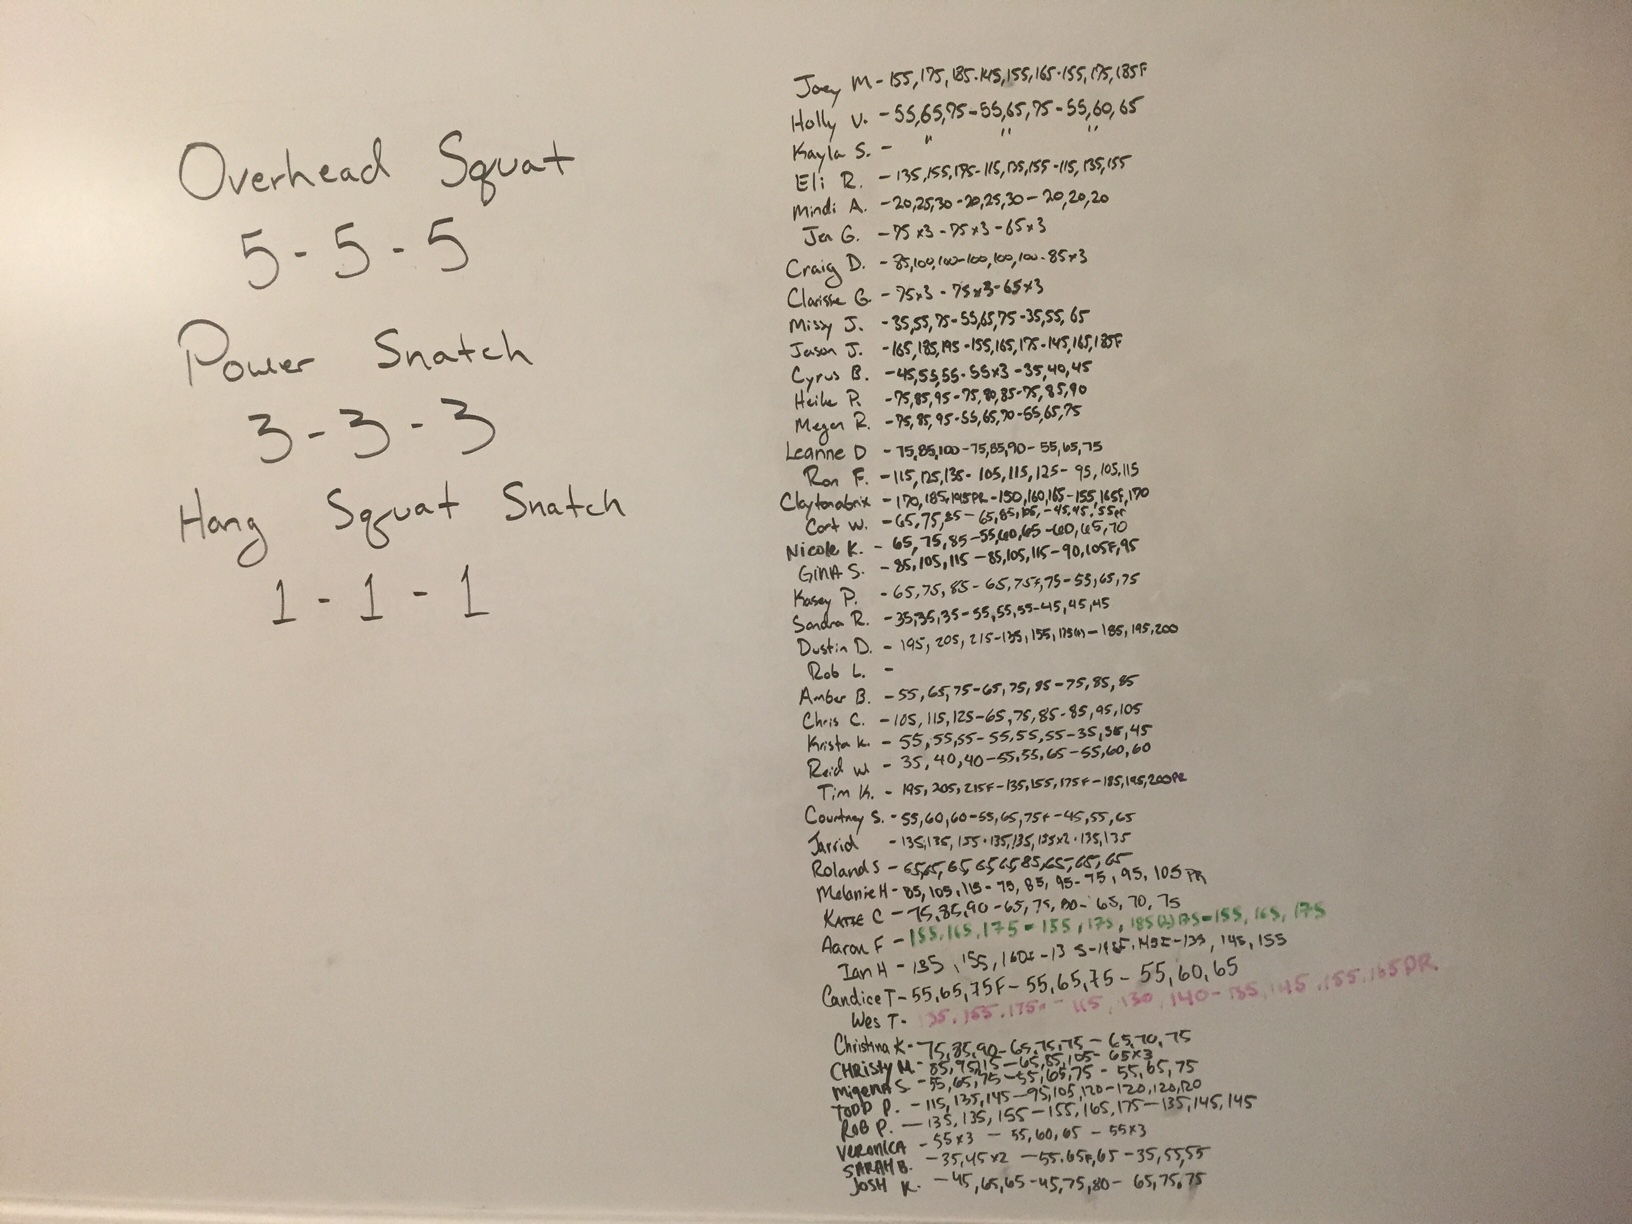 Overhead Squat
5 - 5 - 5
Power Snatch
3 - 3 - 3
Hang Squat Snatch
1 - 1 - 1
Joey M - 155, 175, 185 - 145, 155, 165 - 155, 175, 185F
Holly V. - 55, 65, 75 - 55, 65, 75 - 55, 60, 65
Kayla S. - " " "
Eli R. - 135, 155, 175 - 115, 135, 155 - 115, 135, 155
Mindi A. - 20, 25, 30 - 20, 25, 30 - 20, 20, 20
Jen G. - 75 x3 - 75 x3 - 65 x3
Craig D. - 85, 100, 100 - 100, 100, 100 - 85x3
Clarisse G - 75x3 - 75x3 - 65x3
Missy J. - 35, 55, 75 - 55, 65, 75 - 35, 55, 65
Jason J. - 165, 185, 195 - 155, 165, 175 - 145, 165, 185F
Cyrus B. - 45, 55, 55 - 55x3 - 35, 40, 45
Heike P. - 75, 85, 95 - 75, 80, 85 - 75, 85, 90
Megan R. - 75, 85, 95 - 55, 65, 70 - 55, 65, 75
Leanne D - 75, 85, 100 - 75, 85, 90 - 55, 65, 75
Ron F. - 115, 125, 135 - 105, 115, 125 - 95, 105, 115
Claytonabrix - 170, 185, 195PR - 150, 160, 165 - 155, 165F, 170
Cort W. - 65, 75, 85 - 65, 85, 105, - 45, 45,
Nicole K. - 65, 75, 85 - 55, 60, 65 - 60, 65, 70
GINA S. - 85, 105, 115 - 85, 105, 115 - 90, 105F, 95
Kasey P. - 65, 75, 85 - 65, 75F, 75 - 55, 65, 75
Sandra R. - 35, 35, 35 - 55, 55, 55 - 45, 45, 45
Dustin D. - 195, 205, 215 - 135, 155, 175 - 185, 195, 200
Rob L. -
Amber B. - 55, 65, 75 - 65, 75, 85 - 75, 85, 85
Chris C. - 105, 115, 125 - 65, 75, 85 - 85, 95, 105
Krista K. - 55, 55, 55 - 55, 55, 55 - 35, 35, 45
Reid W - 35, 40, 40 - 55, 55, 65 - 55, 60, 60
Tim K. - 195, 205, 215F - 135, 155, 175F - 185, 195, 200PR
Courtney S. - 55, 60, 60 - 55, 65, 75F - 45, 55, 65
Jarrid - 135, 135, 155 - 135, 135, 135x2 - 135, 135
Roland S - 65, 65, 65, 65, 65, 85, 65, 65, 65
Melanie H - 85, 105, 115 - 75, 85, 95 - 75, 95, 105 PR
KATIE C - 75, 85, 90 - 65, 75, 80 - 65, 70, 75
Aaron F - 155, 165, 175 - 155, 175, 185 175 - 155, 165, 175
Ian H - 135, 155, 160F - 135 - 135, 145, 155
Candice T - 55, 65, 75F - 55, 65, 75 - 55, 60, 65
Wes T - 135, 155, 175 - 115, 130, 140 - 135, 145, 155, 165 PR
Christina K - 75, 85, 90 - 65, 75, 75 - 65, 70, 75
CHRISTY M - 85, 95, 115 - 65, 85, 105 - 65x3
Migena S - 55, 65, 75 - 55, 65, 75 - 55, 65, 75
TODD P. - 115, 135, 145 - 95, 105, 120 - 120, 120, 120
ROB P. - 135, 135, 155 - 155, 165, 175 - 135, 145, 145
VERONICA - 55x3 - 55, 60, 65 - 55x3
SARAH B. - 35, 45 x2 - 55, 65F, 65 - 35, 55, 55
JOSH K. - 45, 65, 65 - 45, 75, 80 - 65, 75, 75